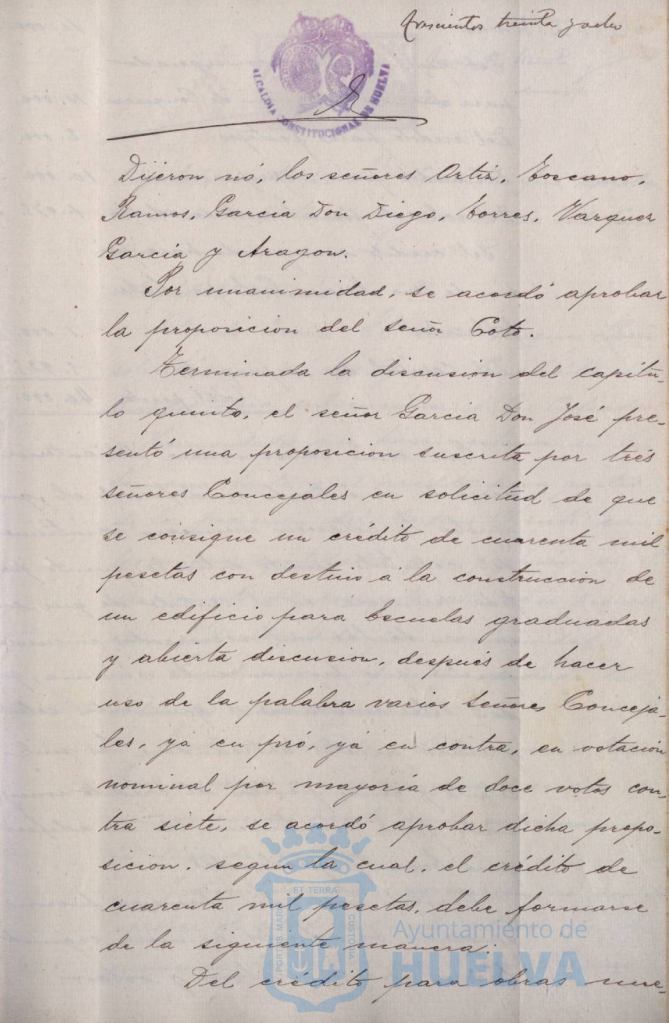 Trescientos treinta y ocho
ALCALDIA CONSTITUCIONAL DE HUELVA
Dijeron nó, los señores Ortiz, Toscano,
Ramos, Garcia Don Diego, Torres, Vazquez
Garcia y Aragon.
Por unanimidad, se acordó aprobar
la proposicion del señor Coto.
Terminada la discusion del capitu-
lo quinto, el señor Garcia Don José pre-
sentó una proposicion suscrita por trés
señores Concejales en solicitud de que
se consigue un crédito de cuarenta mil
pesetas con destino á la construccion de
un edificio para Escuelas graduadas
y abierta discusion, después de hacer
uso de la palabra varios señores Conceja-
les, yá en pró, yá en contra, en votación
nominal por mayoria de doce votos con-
tra siete, se acordó aprobar dicha propo-
sicion, segun la cual, el crédito de
cuarenta mil pesetas, debe formarse
de la siguiente manera:
Del crédito para obras nue-
ET TERRA
PORTUS MARIS
CUSTODIA
Ayuntamiento de
HUELVA